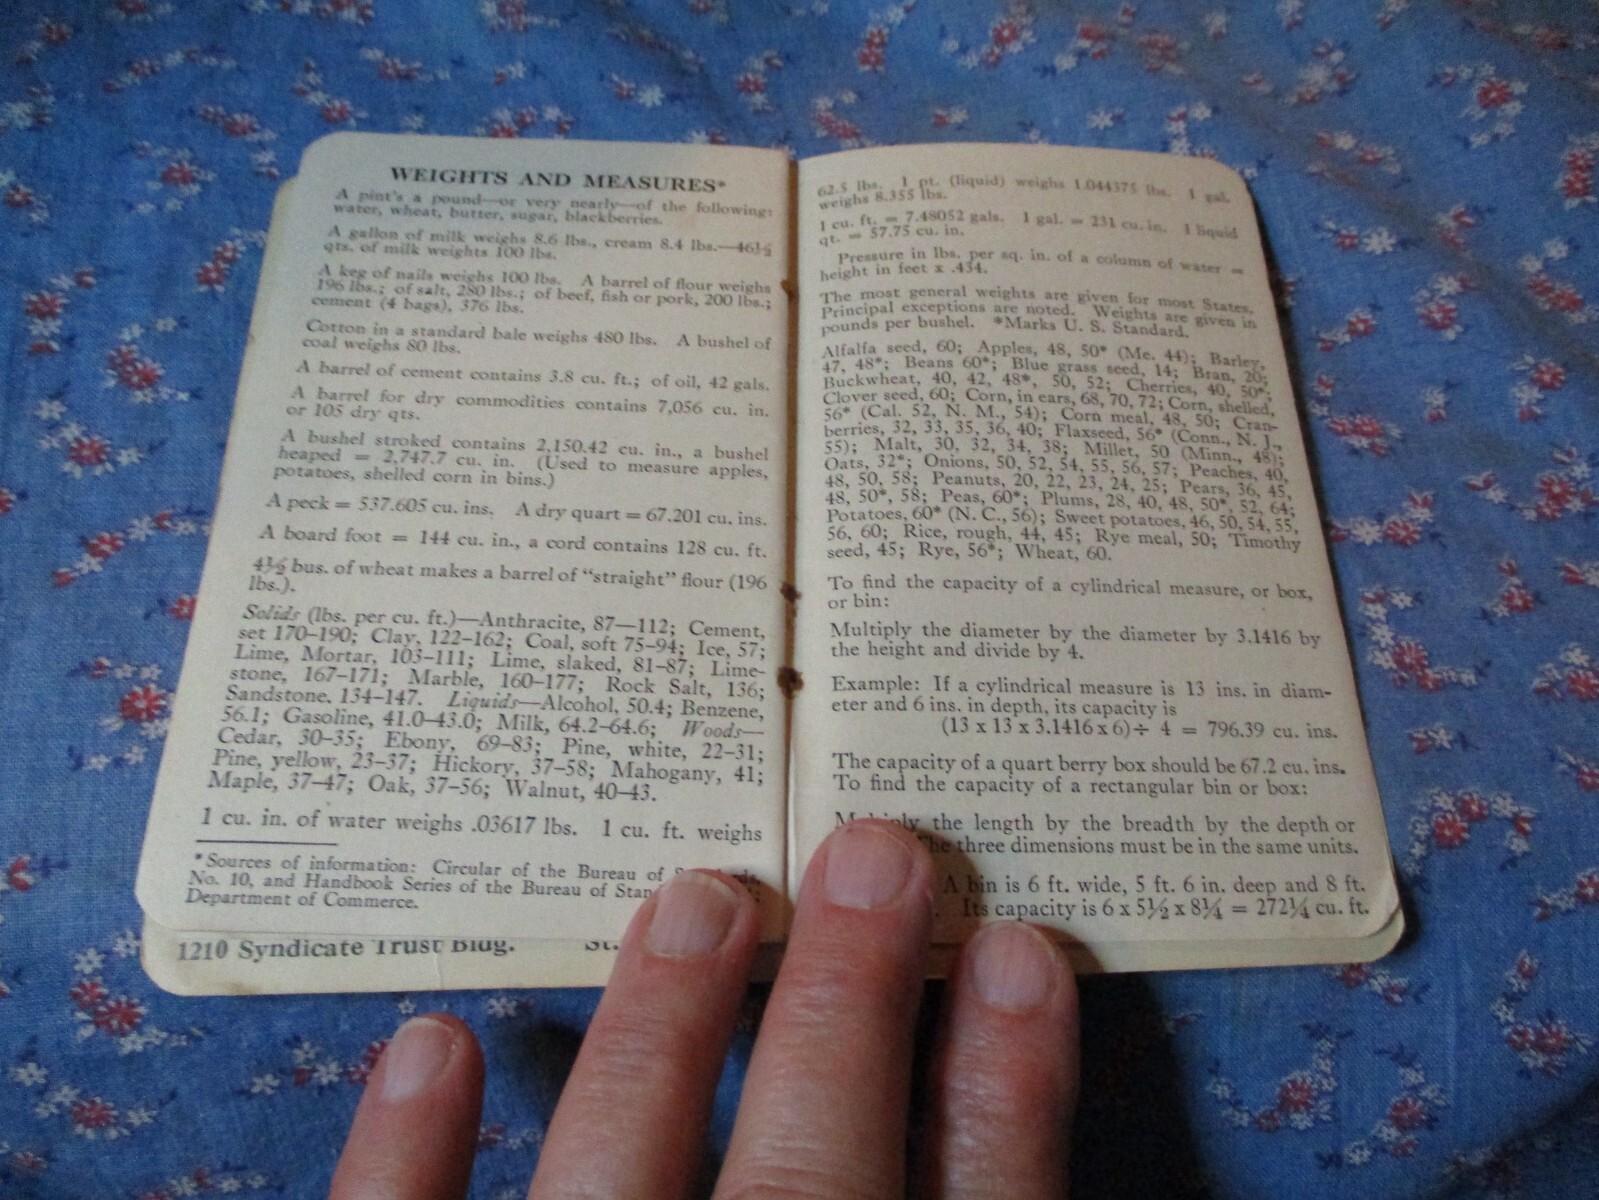 WEIGHTS AND MEASURES*
A pint's a pound—or very nearly—of the following:
water, wheat, butter, sugar, blackberries.
A gallon of milk weighs 8.6 lbs., cream 8.4 lbs.—46½
qts. of milk weights 100 lbs.
A keg of nails weighs 100 lbs. A barrel of flour weighs
196 lbs.; of salt, 280 lbs.; of beef, fish or pork, 200 lbs.;
cement (4 bags), 376 lbs.
Cotton in a standard bale weighs 480 lbs. A bushel of
coal weighs 80 lbs.
A barrel of cement contains 3.8 cu. ft.; of oil, 42 gals.
A barrel for dry commodities contains 7,056 cu. in.
or 105 dry qts.
A bushel stroked contains 2,150.42 cu. in., a bushel
heaped = 2,747.7 cu. in. (Used to measure apples,
potatoes, shelled corn in bins.)
A peck = 537.605 cu. ins. A dry quart = 67.201 cu. ins.
A board foot = 144 cu. in., a cord contains 128 cu. ft.
4½ bus. of wheat makes a barrel of "straight" flour (196
lbs.).
Solids (lbs. per cu. ft.)—Anthracite, 87—112; Cement,
set 170–190; Clay, 122–162; Coal, soft 75–94; Ice, 57;
Lime, Mortar, 103–111; Lime, slaked, 81–87; Lime-
stone, 167–171; Marble, 160–177; Rock Salt, 136;
Sandstone. 134–147. Liquids—Alcohol, 50.4; Benzene,
56.1; Gasoline, 41.0–43.0; Milk, 64.2–64.6; Woods—
Cedar, 30–35; Ebony, 69–83; Pine, white, 22–31;
Pine, yellow, 23–37; Hickory, 37–58; Mahogany, 41;
Maple, 37–47; Oak, 37–56; Walnut, 40–43.
1 cu. in. of water weighs .03617 lbs. 1 cu. ft. weighs
*Sources of information: Circular of the Bureau of
No. 10, and Handbook Series of the Bureau of
Department of Commerce.
1210 Syndicate Trust Bldg. St.
62.5 lbs. 1 pt. (liquid) weighs 1.044375 lbs. 1 gal.
weighs 8.355 lbs.
1 cu. ft. = 7.48052 gals. 1 gal. = 231 cu. in. 1 liquid
qt. = 57.75 cu. in.
Pressure in lbs. per sq. in. of a column of water =
height in feet x .434.
The most general weights are given for most States.
Principal exceptions are noted. Weights are given in
pounds per bushel. *Marks U. S. Standard.
Alfalfa seed, 60; Apples, 48, 50* (Me. 44); Barley,
47, 48*; Beans 60*; Blue grass seed, 14; Bran, 20;
Buckwheat, 40, 42, 48*, 50, 52; Cherries, 40, 50*;
Clover seed, 60; Corn, in ears, 68, 70, 72; Corn, shelled,
56* (Cal. 52, N. M., 54); Corn meal, 48, 50; Cran-
berries, 32, 33, 35, 36, 40; Flaxseed, 56* (Conn., N. J.,
55); Malt, 30, 32, 34, 38; Millet, 50 (Minn., 48);
Oats, 32*; Onions, 50, 52, 54, 55, 56, 57; Peaches, 40,
48, 50, 58; Peanuts, 20, 22, 23, 24, 25; Pears, 36, 45,
48, 50*, 58; Peas, 60*; Plums, 28, 40, 48, 50*, 52, 64;
Potatoes, 60* (N. C., 56); Sweet potatoes, 46, 50, 54, 55,
56, 60; Rice, rough, 44, 45; Rye meal, 50; Timothy
seed, 45; Rye, 56*; Wheat, 60.
To find the capacity of a cylindrical measure, or box,
or bin:
Multiply the diameter by the diameter by 3.1416 by
the height and divide by 4.
Example: If a cylindrical measure is 13 ins. in diam-
eter and 6 ins. in depth, its capacity is
(13 x 13 x 3.1416 x 6) ÷ 4 = 796.39 cu. ins.
The capacity of a quart berry box should be 67.2 cu. ins.
To find the capacity of a rectangular bin or box:
Multiply the length by the breadth by the depth or
The three dimensions must be in the same units.
A bin is 6 ft. wide, 5 ft. 6 in. deep and 8 ft.
Its capacity is 6 x 5½ x 8¼ = 272¼ cu. ft.